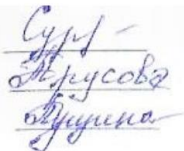 Сург
Трусова
Пущина